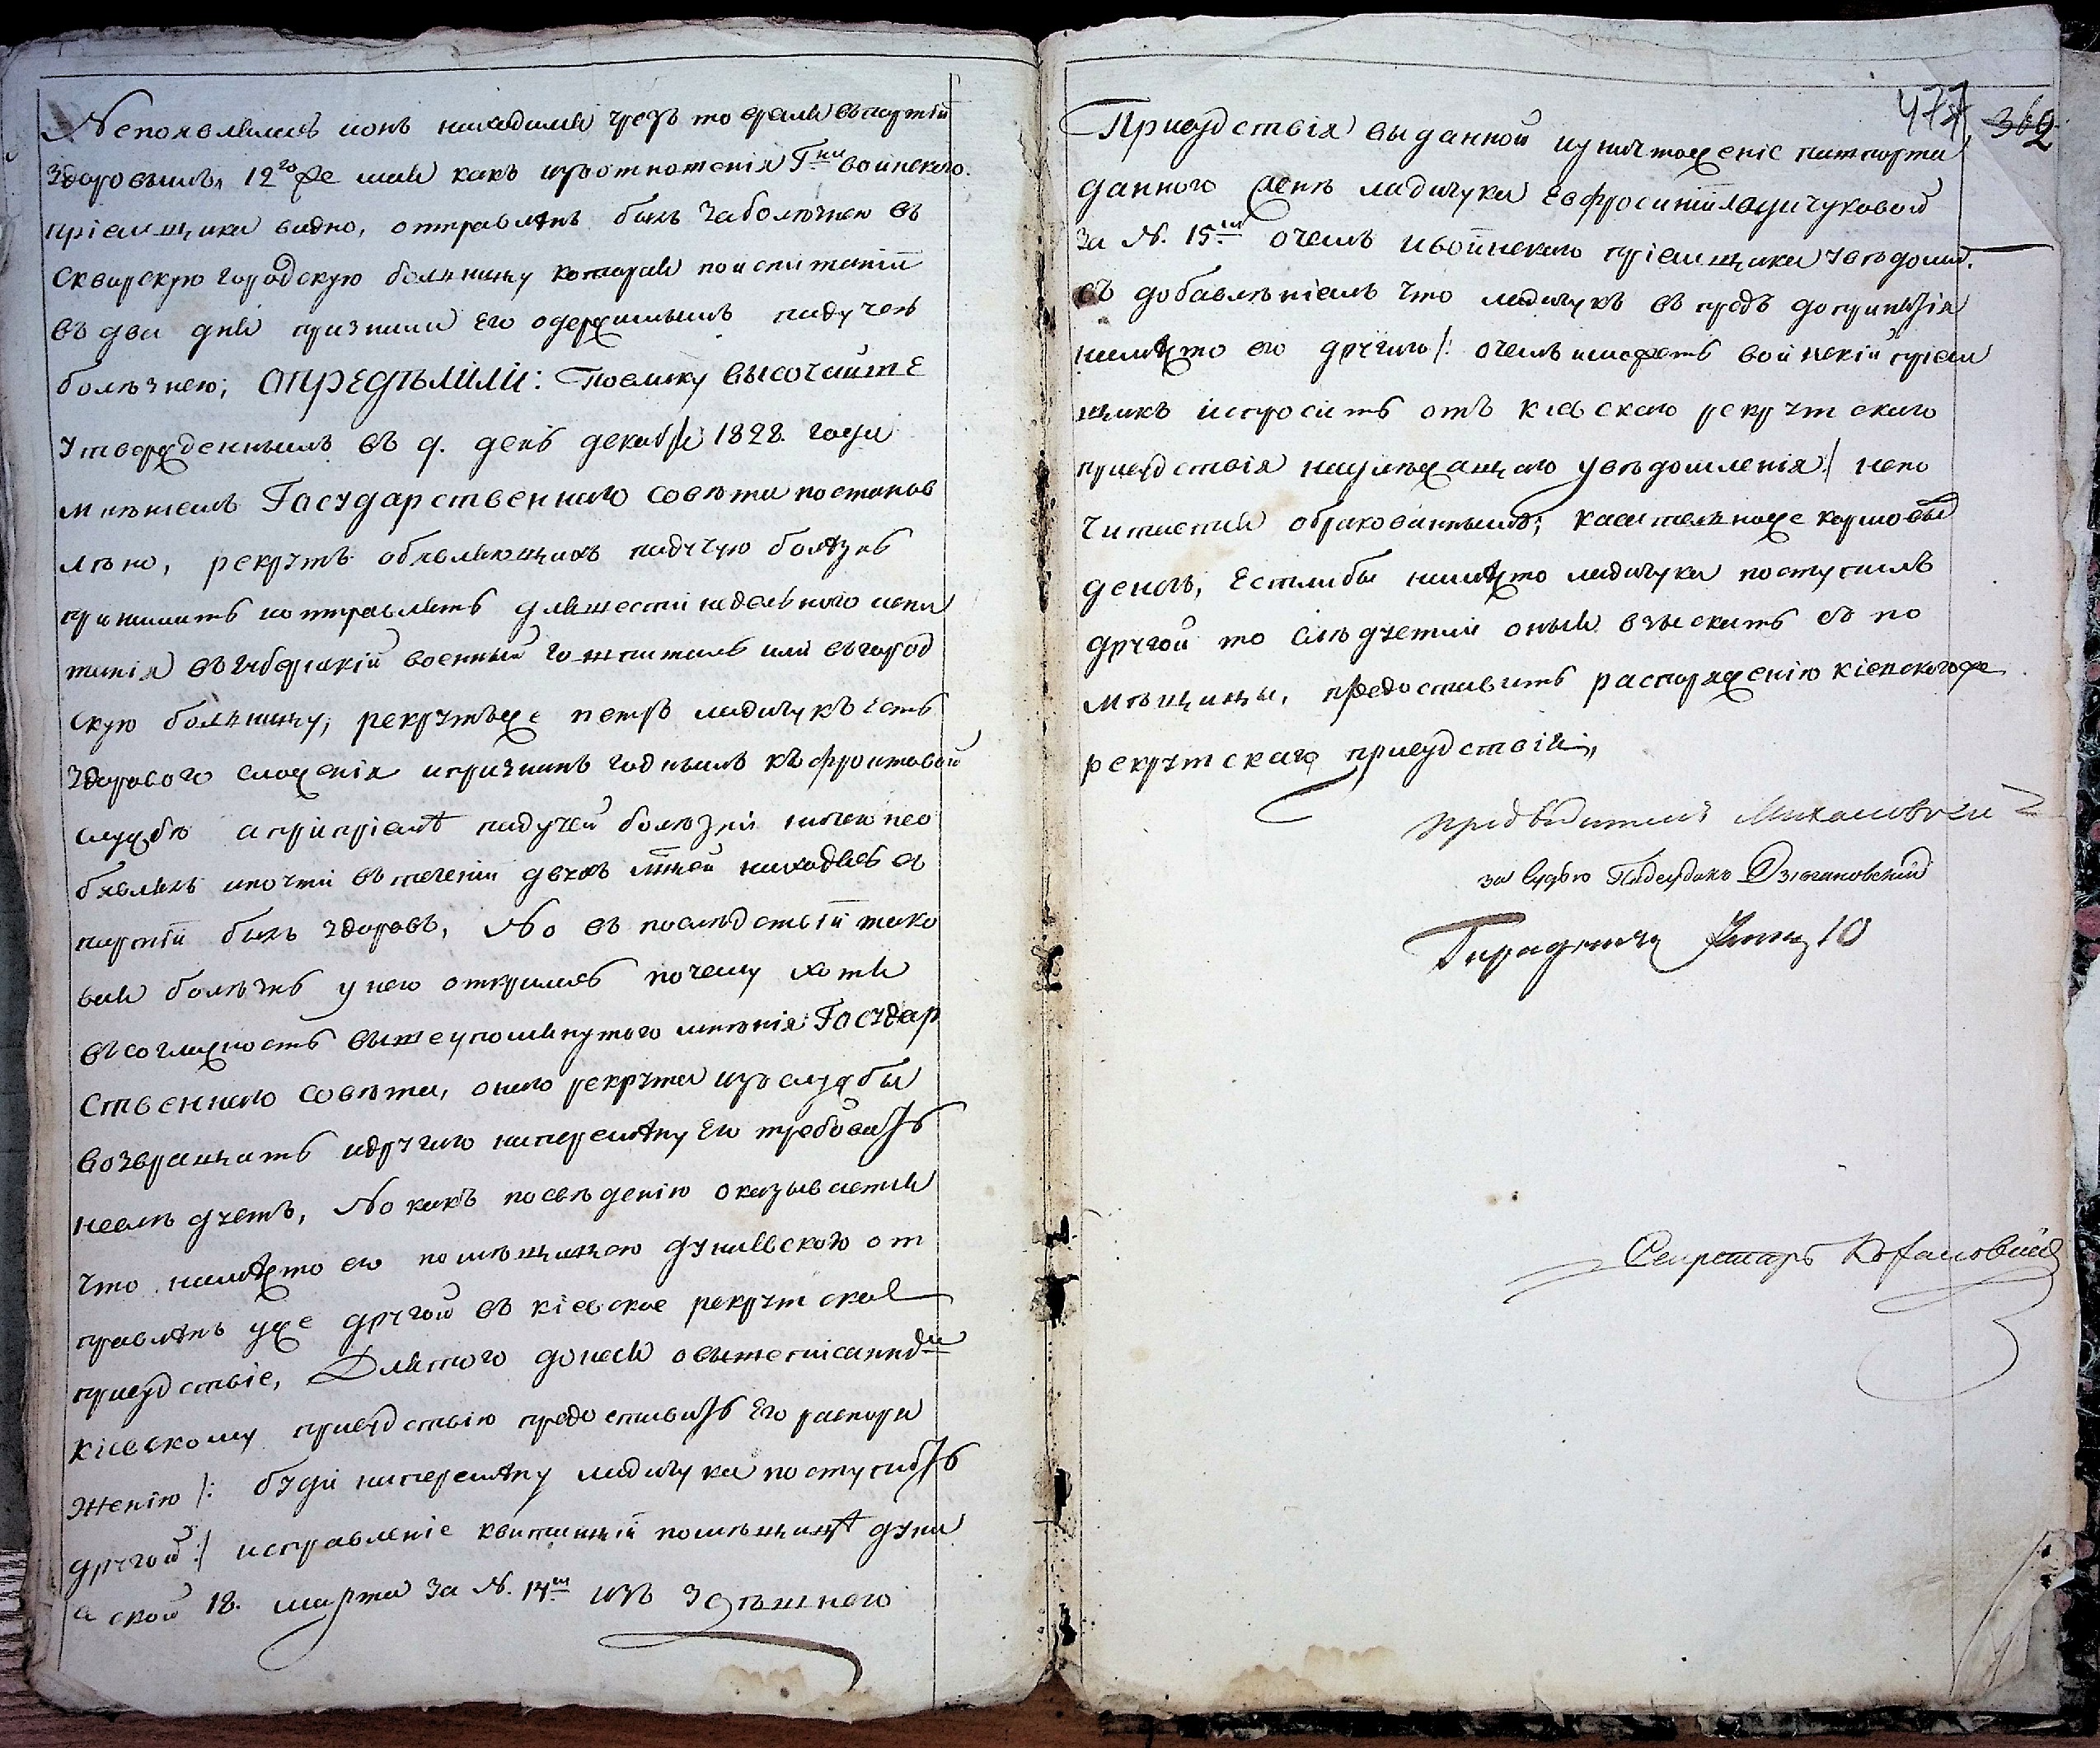 Непоявлялась ионъ находился чрезъ то время въ партіи
здоровымъ, 12го же мая какъ изъ отношенія Гна воинского
пріемщика видно, отправленъ былъ заболезнею въ
Сквирскую городскую больницу которая поиспитаніи
въ два дня признала его одержимымъ падучею
болѣзнею; определили: Поелику высочайше
утвержденнымъ въ 9. день декабря 1828. года
мнѣніемъ Государственнаго совѣта постанов
лѣно, рекрутъ объявляющихъ падучую болѣзнь
принимать иотправлять для шести недельного испы
танія въ ближайшій военный гошпиталь или въ город
скую больницу; рекрутъ же петръ ладычукъ есть
здорового сложенія ипризнанъ годнымъ къ фронтовой
службѣ априпріемѣ падучей болѣзни насебѣ нео
бъявлялъ ипочти въ теченіи двухъ мѣсяцей находясь въ
партіи былъ здоровъ, Но въ последствіи тако
вая болѣзнь унего открылась почему хотя
въ согласность вышеупомянутого мнѣнія Государ
ственнаго совѣта, оного рекрута изъ службы
возвращать идругого наперемѣну его требовать
неслѣдуетъ, Но какъ посвѣденію оказывается
что намѣсто его помѣщицею дунаевского от
правленъ уже другой въ кіевское рекрутское
присудствіе, Для того донеся овышеписанномъ
кіевскому присудствію предоставить его распоря
женію /: буди наперемѣну ладычука поступитъ
другой :/ исправленіе квитанціи помѣщицѣ дуна
евской 18. марта за N. 14м изъ здѣшнего
477 362
Присудствія выданной иуничтоженіе пашпорта
данного женѣ ладычука Евфросиніи ладычуковой
за N. 15м очемъ ивоинского пріемщика увѣдомить
съ добавлѣніемъ что ладычукъ въ предь допринятія
намѣсто его другого /: очемъ имѣетъ воинскій пріем
щикъ испросить отъ кіевского рекрутского
присудствія надлежащего увѣдомленія :/ непо
читается обракованнымъ; касательно же кормовы
денегъ, естлибы намѣсто ладычука поступилъ
другой то слѣдуетли оныя взыскать съ по
мѣщицы, предоставить распоряженію кіевского же
рекрутского присудствія.
предводитель Михаловскій
за судью Подсудокъ
Городничій
Секретарь